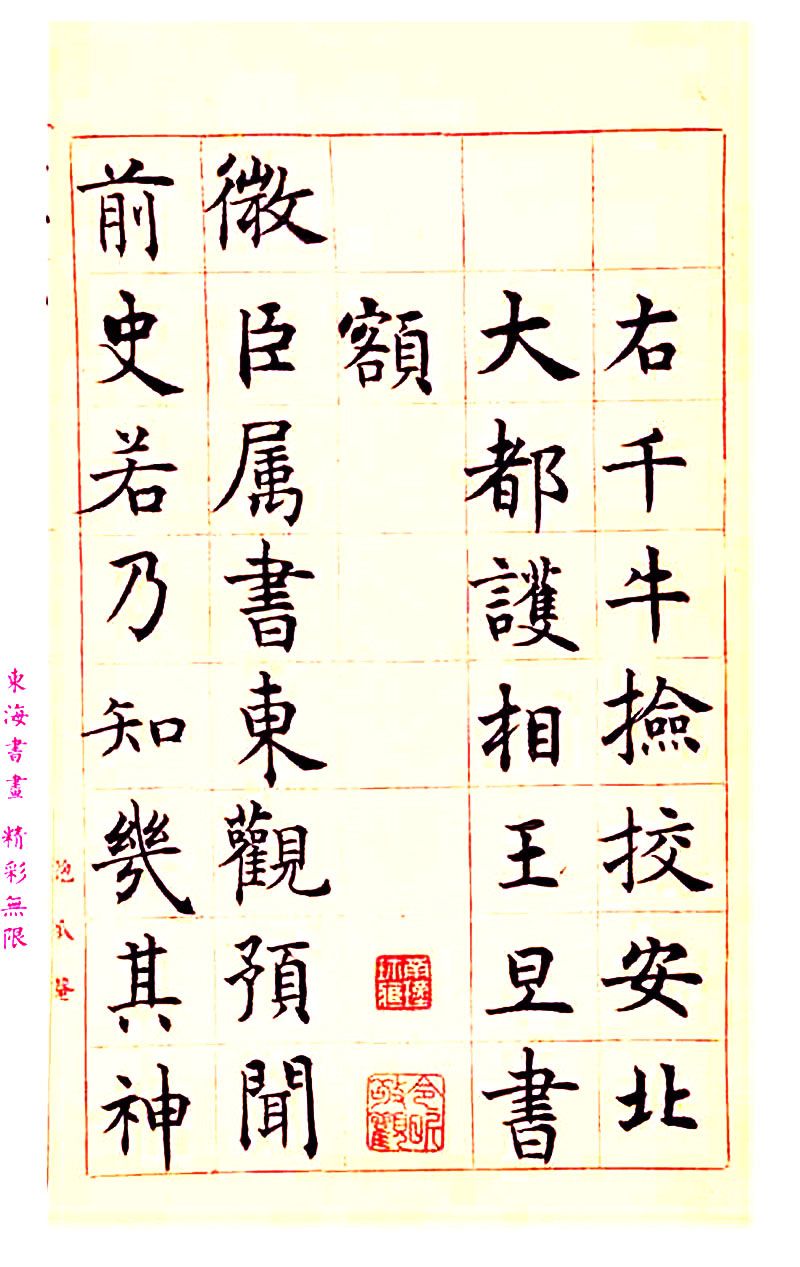 右千牛撿挍安北
大都護相王旦書
額
微臣属書東觀預聞
前史若乃知幾其神
東海書畫 精彩無限